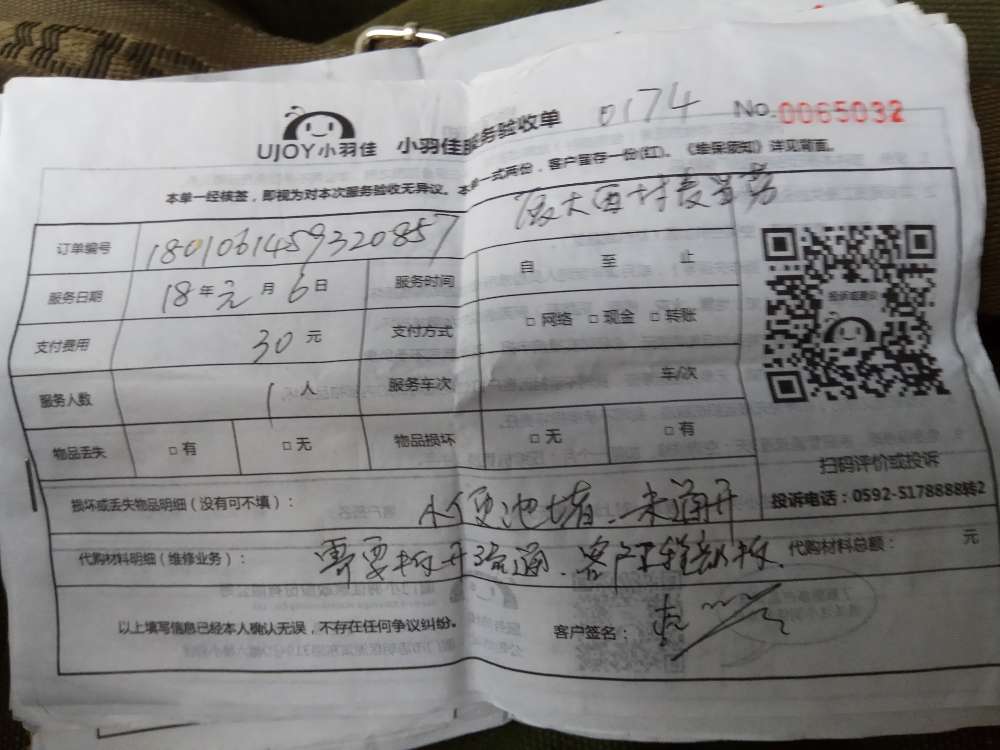 UJOY小羽佳 小羽佳服务验收单 0174 No.0065032
本单一经核签，即视为对本次服务验收无异议。本单一式两份，客户留存一份(红)。《维保须知》详见背面。
订单编号 1801061459320857
服务日期 18年元月6日 服务时间 自 至 止
支付费用 30元 支付方式 □网络 □现金 □转账
服务人数 1人 服务车次 车/次
物品丢失 □有 □无 物品损坏 □无 □有
扫码评价或投诉
投诉电话：0592-5178888转2
损坏或丢失物品明细（没有可不填）： 小便池堵、未通开
代购材料明细（维修业务）： 需要拆开疏通、客户 拆. 代购材料总额： 元
以上填写信息已经本人确认无误，不存在任何争议纠纷。 客户签名：